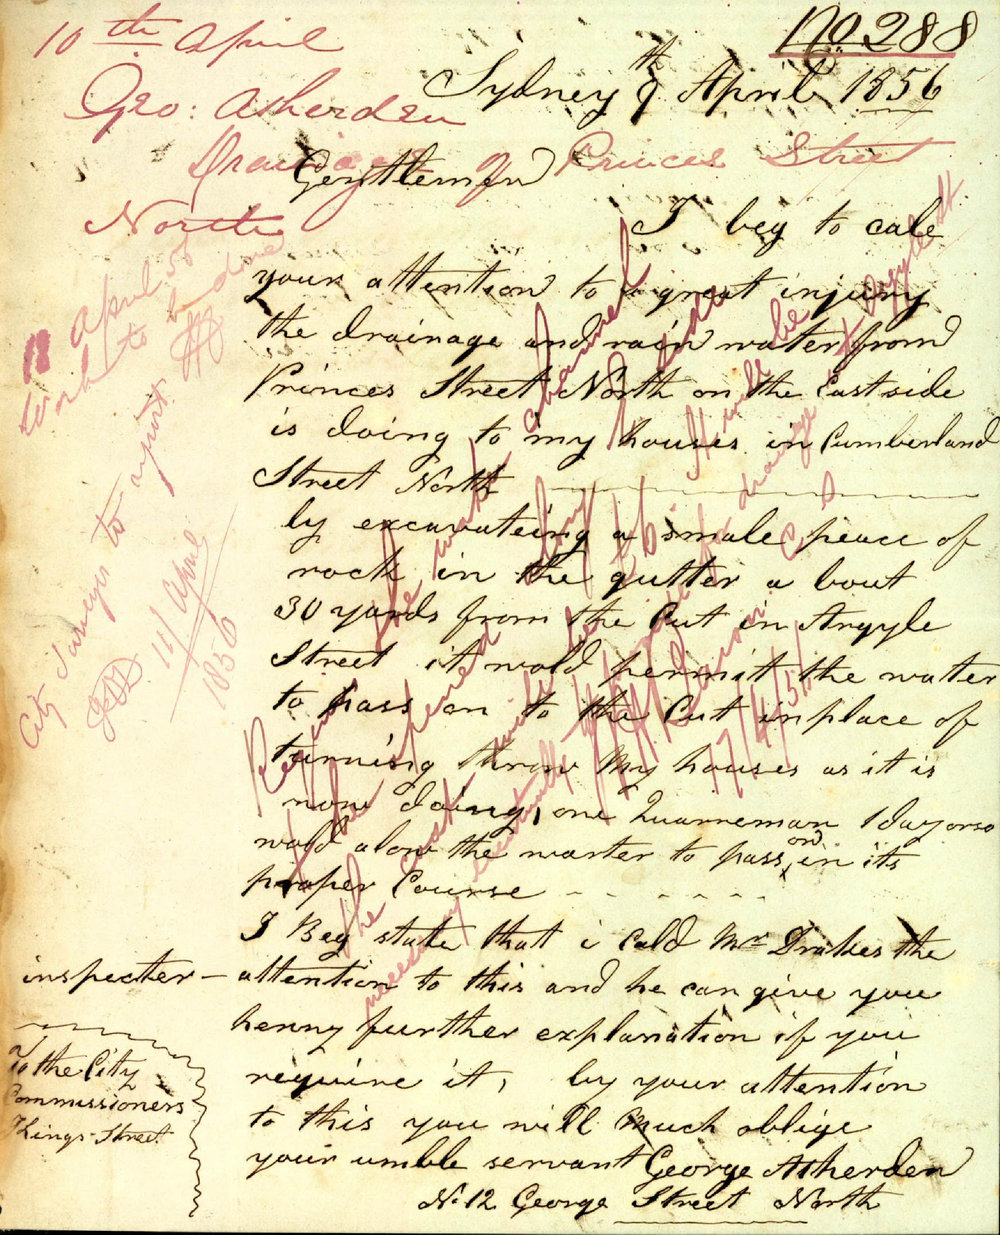 No. 288
10th April
Geo: Atherden
Drainage of Princes Street
North
Sydney 9th April 1856
Gentlemen
I beg to cale
your attention to a great injury
the drainage and rain water from
Princes Street North on the East side
is doing to my houses in Cumberland
Street North
by excavateing a smale peace of
rock in the gutter a bout
30 yards from the Cut in Argyle
Street it wold permit the water
to pass on to the Cut in place of
turning threw my houses as it is
now doing, one Quarreman 1 day or so
wold alow the warter to pass on in its
proper Course
I Beg state that i Cald Mr Drakes the
inspecter - attention to this and he can give you
henny further explanation if you
require it, by your attention
to this you will Much oblige
your umble servant George Atherden
No 12 George Street North
To the City
Commissioners
Kings Street
11 April 56
Work to be done
City Surveyr to report
11/ April
1856
the work
channel
opened
the cost
It will be
necessary eventually
for drainage
Argyle St
17/4/56